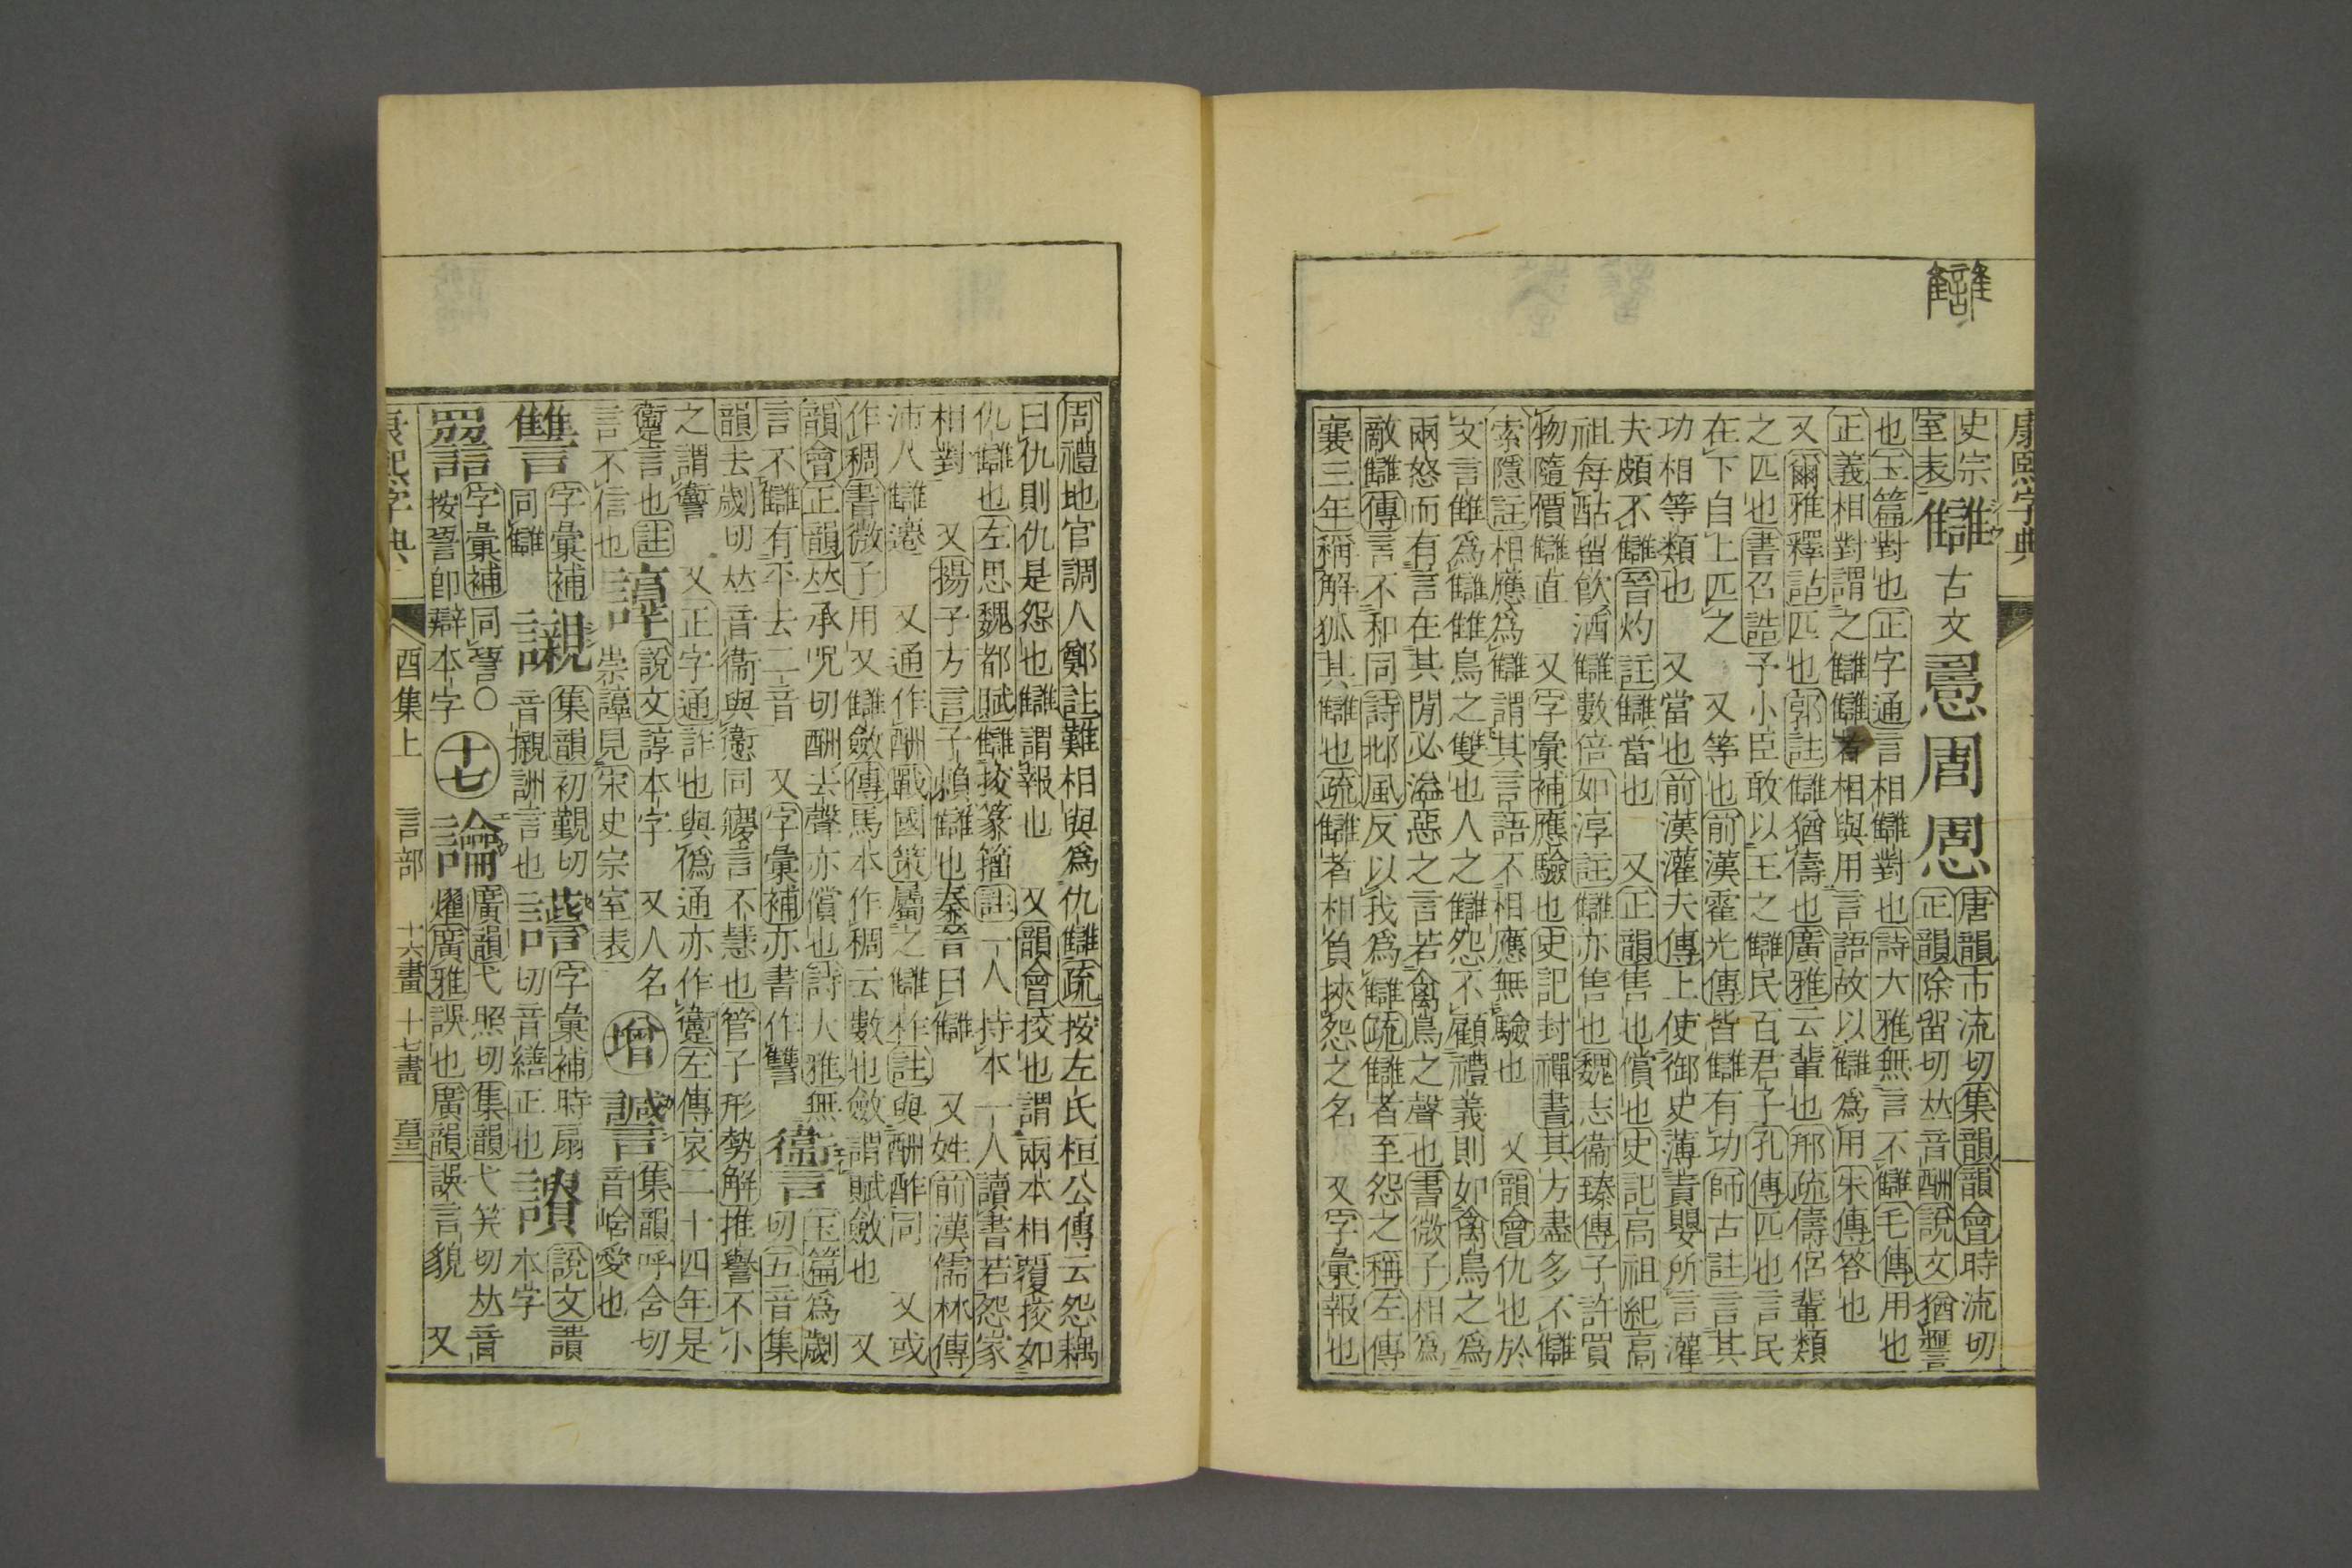 康熙字典
史宗
室表
讎 古文 𠹝 周 㤽
唐韻市流切集韻韻會時流切
正韻除留切𠀤音酬說文猶𤻮
也玉篇對也 正字通言相讎對也詩大雅無言不讎毛傳用也
正義相對謂之讎讎者相與用言語故以讎爲用朱傳答也
又爾雅釋詁匹也郭註讎猶儔也廣雅云輩也邢疏儔侶輩類
之匹也書召誥予小臣敢以王之讎民百君子孔傳匹也言民
在下自上匹之 又等也前漢霍光傳皆讎有功師古註言其
功相等類也 又當也前漢灌夫傳上使御史薄責嬰所言灌
夫頗不讎晉灼註讎當也 又正韻售也償也史記高祖紀高
祖每酤留飮酒讎數倍如淳註讎亦售也魏志衞臻傳子許買
物隨價讎直 又字彙補應驗也史記封禪書其方盡多不讎
索隱註相應爲讎謂其言語不相應無驗也 又韻會仇也於
文言雔爲讎雔鳥之雙也人之讎怨不顧禮義則如禽鳥之爲
兩怒而有言在其閒必溢惡之言若禽鳥之聲也書微子相爲
敵讎傳言不和同詩邶風反以我爲讎疏讎者至怨之稱左傳
襄三年稱解狐其讎也疏讎者相負挾怨之名 又字彙報也
周禮地官調人鄭註難相與爲仇讎疏按左氏桓公傳云怨耦
曰仇則仇是怨也讎謂報也 又韻會挍也謂兩本相覆挍如
仇讎也左思魏都賦讎挍篆籀註一人持本一人讀書若怨家
相對 又揚子方言子賴讎也秦晉曰讎 又姓前漢儒林傳
沛人讎漨 又通作酬戰國策屬之讎柞註與酬酢同 又或
作稠書微子用乂讎斂傳馬本作稠云數也斂謂賦斂也 又
韻會正韻𠀤承呪切酬去聲亦償也詩大雅無
言不讎有平去二音 又字彙補亦書作讐
𧬨 玉篇爲劌
切五音集
韻去劌切𠀤音衞與𢖍同寱言不慧也管子形勢解推譽不小
之謂𧬨 又正字通詐也與僞通亦作𧗸左傳哀二十四年是
𧗸言也註
言不信也
𧭈 說文諄本字 又人名
崇𧭈見宋史宗室表
增
𧬰 集韻呼含切
音㟏愛也
讐 字彙補
同讎
䞋 集韻初覲切
音櫬詶言也
字彙補時扇
切音繕正也
說文讃
本字
字彙補同𧮢○
按𧮢卽辯本字
十七
䜛 廣韻弋照切集韻弋笑切𠀤音
燿廣雅誤也廣韻誤言貌 又
康熙字典 酉集上 言部 十六畫 十七畫 亖